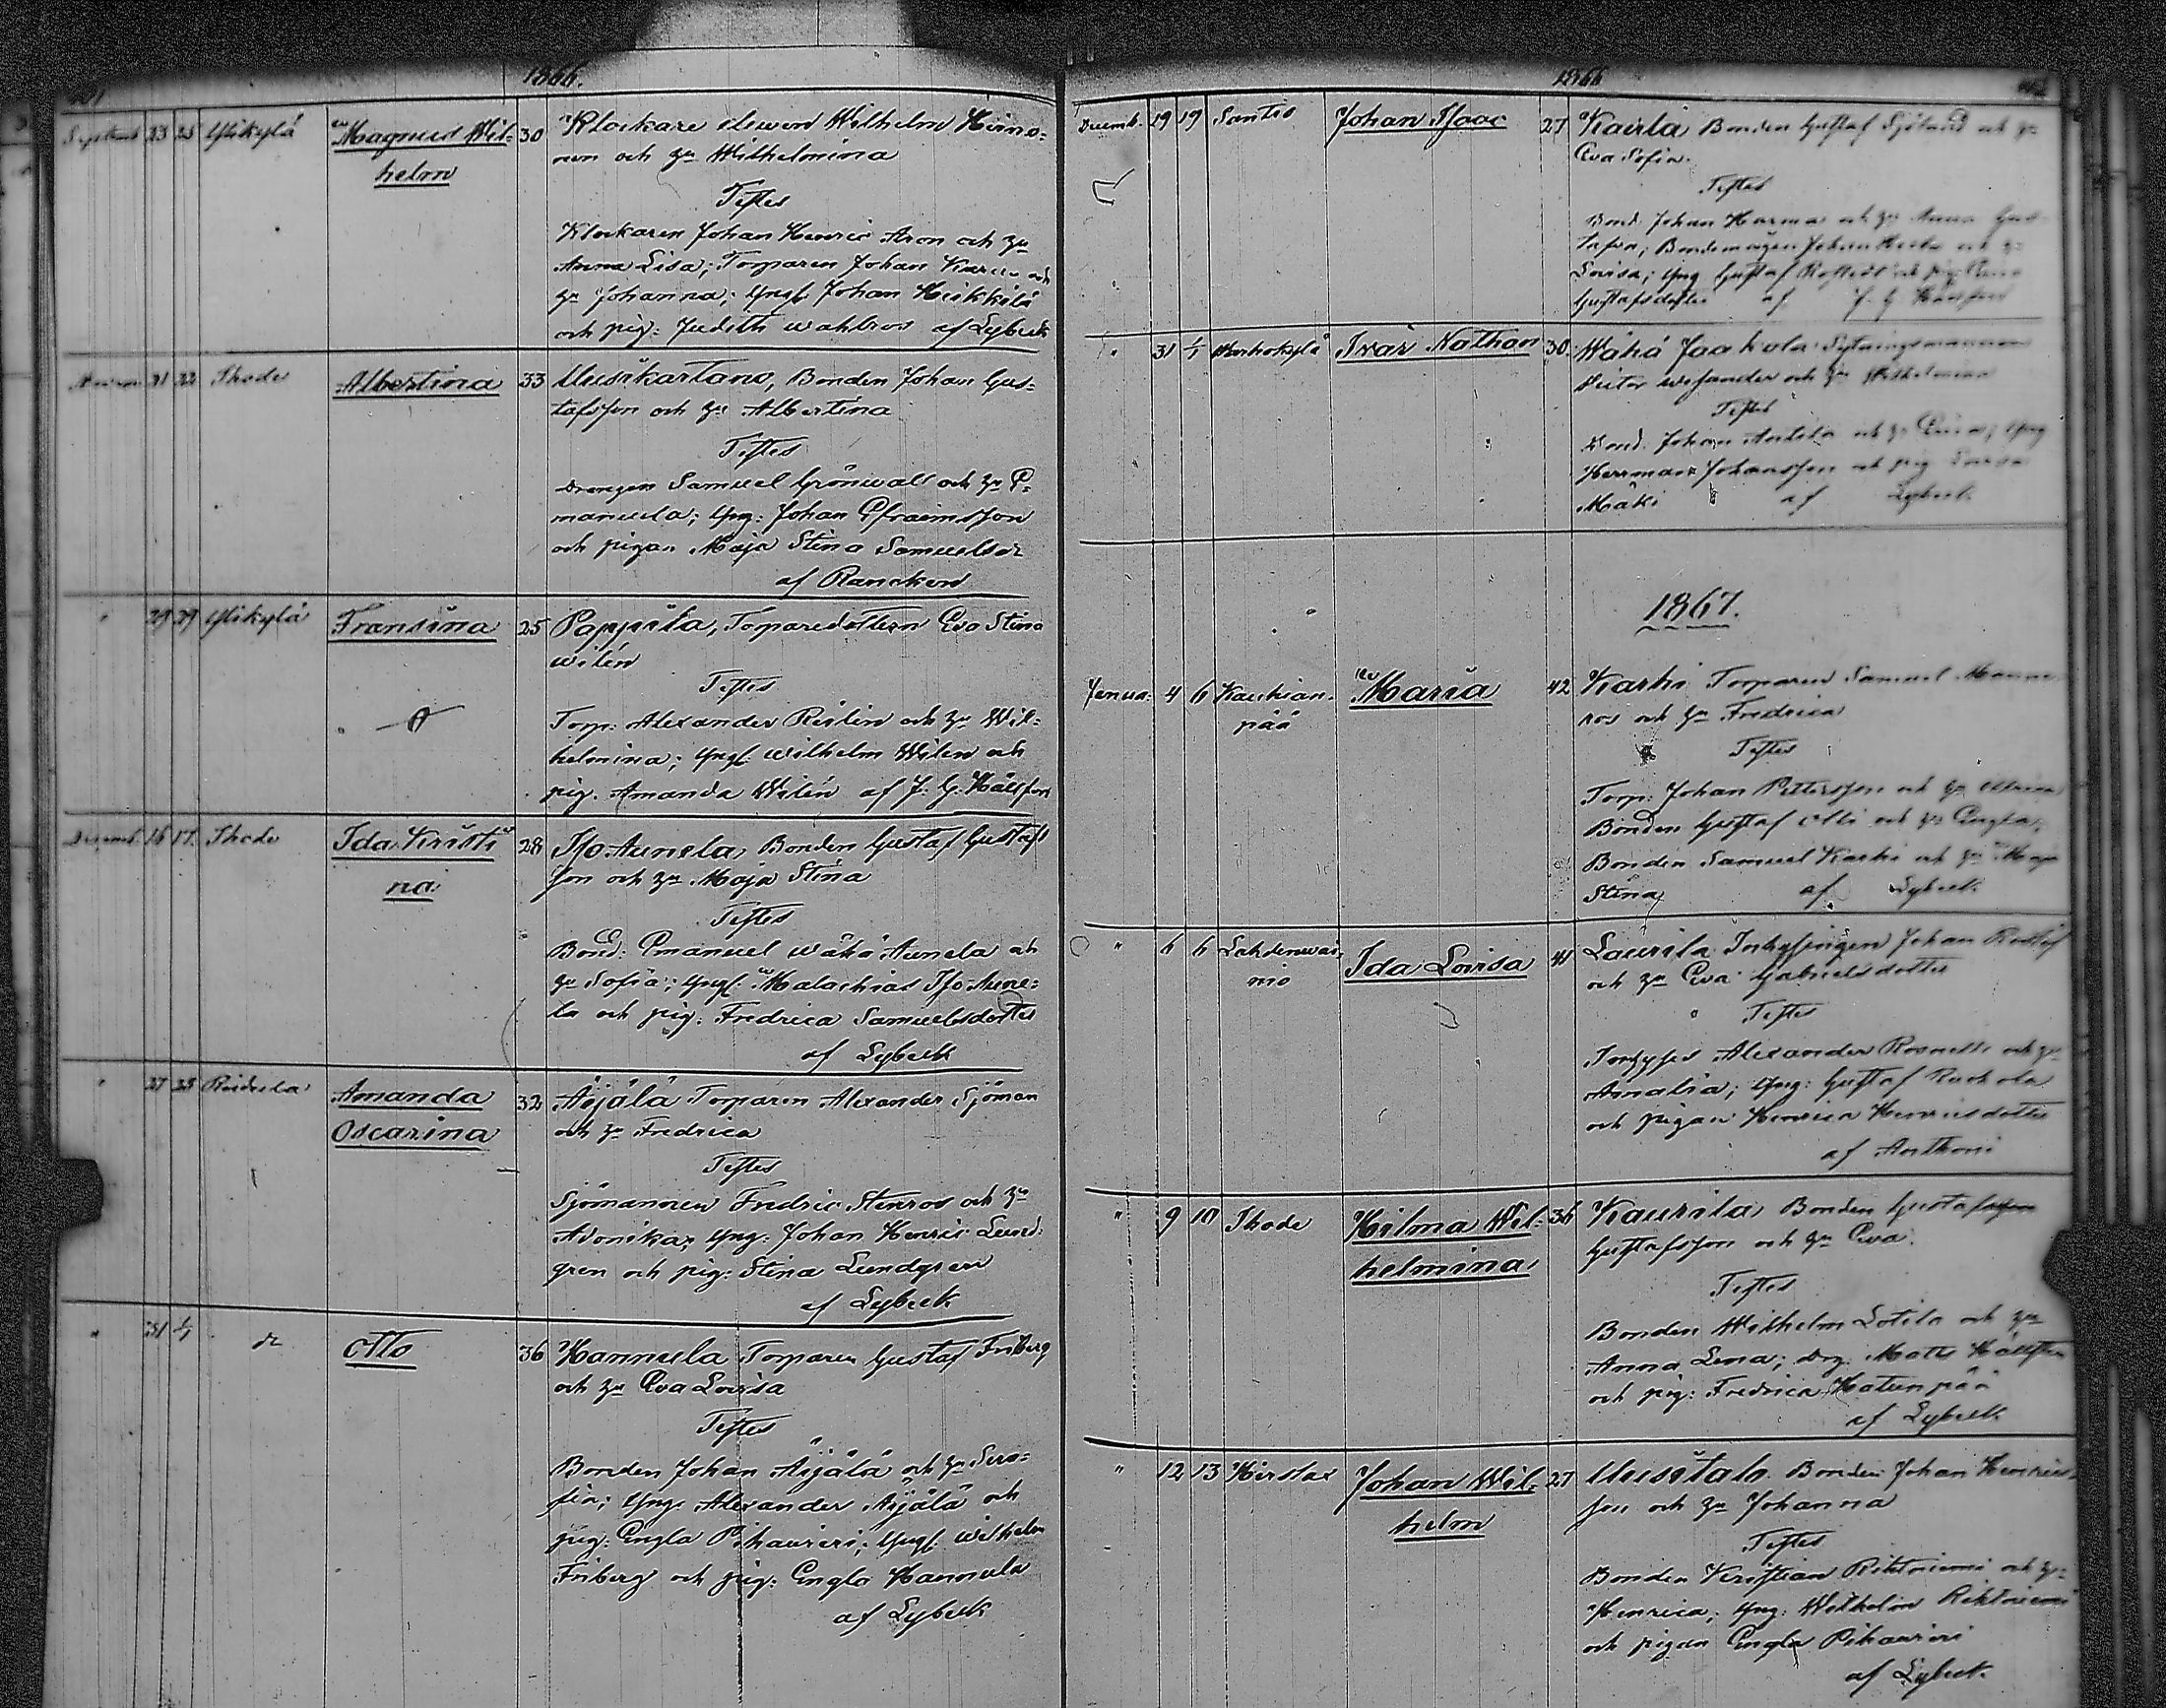 1866.
Septemb 23 25 Ylikylä Magnus Wil= 30 Klockare eleven Wilhelm Heino=
helm nen och Hu Wilhelmina
Testes
Klockaren Johan Henric Aron och Hu
Anna Lisa; Torparen Johan och
Hu Johanna; Yngl. Johan Heikkilä
och pig: Judith Wahlros af Lybeck
21 22 Thode Albertina 33 Uusikartano, Bonden Johan Gus=
tafsson och Hu Albertina
Testes
Drängen Samuel Grönwall och Hu E=
manuela; Yng: Johan Efraimsson
och pigan Maja Stina Samuelsdr
af Rancken
" 29 29 Ylikylä Fransina 25 Pappila, Torparedottern Eva Stina
Wilén
Testes
Torp: Alexander Reilin och Hu Wil=
helmina; Yngl: Wilhelm Wilen och
pig. Amanda Wilén af J. G. Hällfors
Decemb. 16 17 Thode Ida Kristi 28 Iso Aunela, Bonden Gustaf Gustafs
na son och Hu Maja Stina
Testes
Bond: Emanuel Wähä Aunela och
Hu Sofia; Yngl: Malachias Iso Aune=
la och pig: Fredrica Samuelsdotter
af Lybeck
" 27 28 Amanda 32 Äijälä Torparen Alexander Sjöman
Oscarina och Hu Fredrica
Testes
Sjömannen Fredric Stenros och Hu
Adonika; Yng: Johan Henric Lund=
gren och pig: Stina Lundgren
af Lybeck
" 31 1/1 dr Otto 36 Hannula Torparen Gustaf Friberg
och Hu Eva Lovisa
Testes
Bonden Johan Äijälä och Hu Sero=
fia; Yng: Alexander Äijälä och
pig: Engla Pihavieri; Yngl: Wilhelm
Friberg och pig: Engla Hannula
af Lybeck
1866
Decemb. 19 19 Santio Johan Isaac 27 Kairla Bonden Gustaf Sjölund och Hu
Eva Sofia.
Testes
Bond. Johan Harma och Hu Anna Gus
tafva; Bondemågen Johan och Hu
Lovisa; Yng Gustaf och pig:
Gustafsdotter af J. G. Hällfors
" 31 1/1 Warhokylä Ivar Nathan 30 Wähä Jaakola Sytningsmannen
Victor och Hu Wilhelmina
Testes
Bond. Johan Antila och Hu Yng
Herrman Johansson och pig Lovisa
Mäki af Lybeck.
1867.
Janua: 4 6 Kaukian= Maria 42 Karhi Torparen Samuel
pää ros och Hu Fredrica
Testes
Torp: Johan Pettersson och Hu Ulrica
Bonden Gustaf Olli och Hu Engla;
Bonden Samuel Karhi och Hu Maja
Stina af Lybeck.
" 6 6 Lahdenwai Ida Lovisa 41 Laurila Inhysingen Johan
nio och Hu Eva Gabrielsdotter
Testes
Inhyses Alexander Rosnell och Hu
Amalia; Yng: Gustaf Ruohola
och pigan Henrica Henricsdotter
af Anthoni
" 9 10 Thode Hilma Wil= 36 Kaurila, Bonden Gustaf
helmina Gustafsson och Hu Eva.
Testes
Bonden Wilhelm Sotila och Hu
Anna Lena; drg. Matts Hällsten
och pig: Fredrica Hatunpää
af Lybeck.
" 12 13 Hirslax Johan Wil= 27 Uusitalo. Bonden Johan Henrics
helm son och Hu Johanna
Testes
Bonden Kristian Rihtniemi och Hu
Henrica; Yng: Wilhelm Rihtniemi
och pigan Engla Pihavieri
af Lybeck.